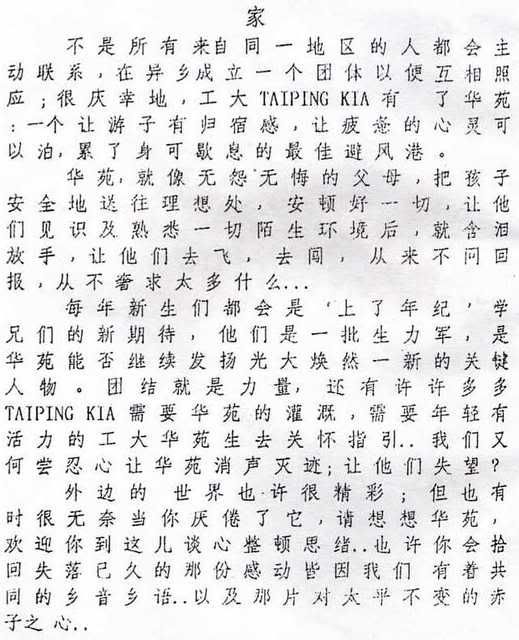 家
不是所有来自同一地区的人都会主
动联系,在异乡成立一个团体以便互相照
应;很庆幸地,工大TAIPING KIA有 了华苑
:一个让游子有归宿感,让疲惫的心灵可
以泊,累了身可歇息的最佳避风港。
华苑,就像无怨无悔的父母,把孩子
安全地送往理想处,安顿好一切,让他
们见识及熟悉一切陌生环境后,就含泪
放手,让他们去飞,去闯,从来不问回
报,从不奢求太多什么...
每年新生们都会是‘上了年纪’学
兄们的新期待,他们是一批生力军,是
华苑能否继续发扬光大焕然一新的关键
人物。团结就是力量,还有许许多多
TAIPING KIA需要华苑的灌溉,需要年轻有
活力的工大华苑生去关怀指引..我们又
何尝忍心让华苑消声灭迹;让他们失望?
外边的 世界也许很精彩;但也有
时很无奈当你厌倦了它,请想想华苑,
欢迎你到这儿谈心整顿思绪..也许你会拾
回失落已久的那份感动皆因我们 有着共
同的乡音乡语..以及那片对太平不变的赤
子之心..